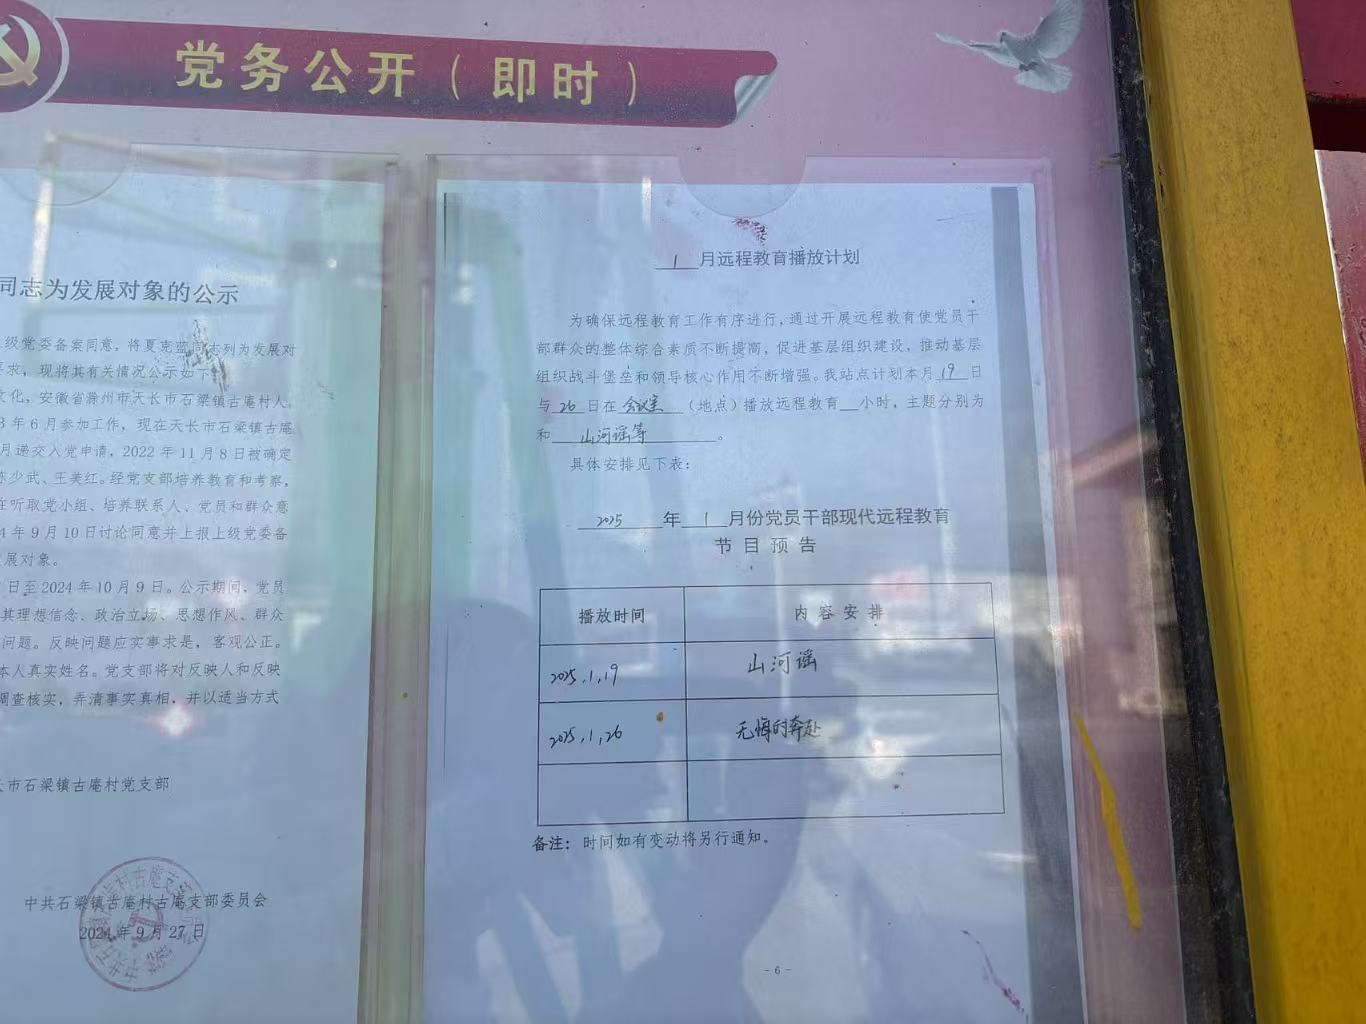 党务公开（即时）
同志为发展对象的公示
级党委备案同意，将夏克蓝同志列为发展对
要求，现将其有关情况公示如下
文化，安徽省滁州市天长市石梁镇古庵村人，
3年6月参加工作，现在天长市石梁镇古庵
月递交入党申请，2022年11月8日被确定
陈少武、王美红。经党支部培养教育和考察，
在听取党小组、培养联系人、党员和群众意
4年9月10日讨论同意并上报上级党委备
发展对象。
日至2024年10月9日。公示期间，党员
其理想信念、政治立场、思想作风、群众
问题。反映问题应实事求是，客观公正。
本人真实姓名。党支部将对反映人和反映
调查核实，弄清事实真相，并以适当方式
长市石梁镇古庵村党支部
中共石梁镇古庵村古庵支部委员会
2024年9月27日
1月远程教育播放计划
为确保远程教育工作有序进行，通过开展远程教育使党员干
部群众的整体综合素质不断提高，促进基层组织建设，推动基层
组织战斗堡垒和领导核心作用不断增强。我站点计划本月19日
与26日在会议室（地点）播放远程教育__小时，主题分别为
和 山河谣等。
具体安排见下表：
2025年1月份党员干部现代远程教育
节目预告
播放时间 内容安排
2025.1.19 山河谣
2025.1.26 无悔的奔赴
备注：时间如有变动将另行通知。
-6-